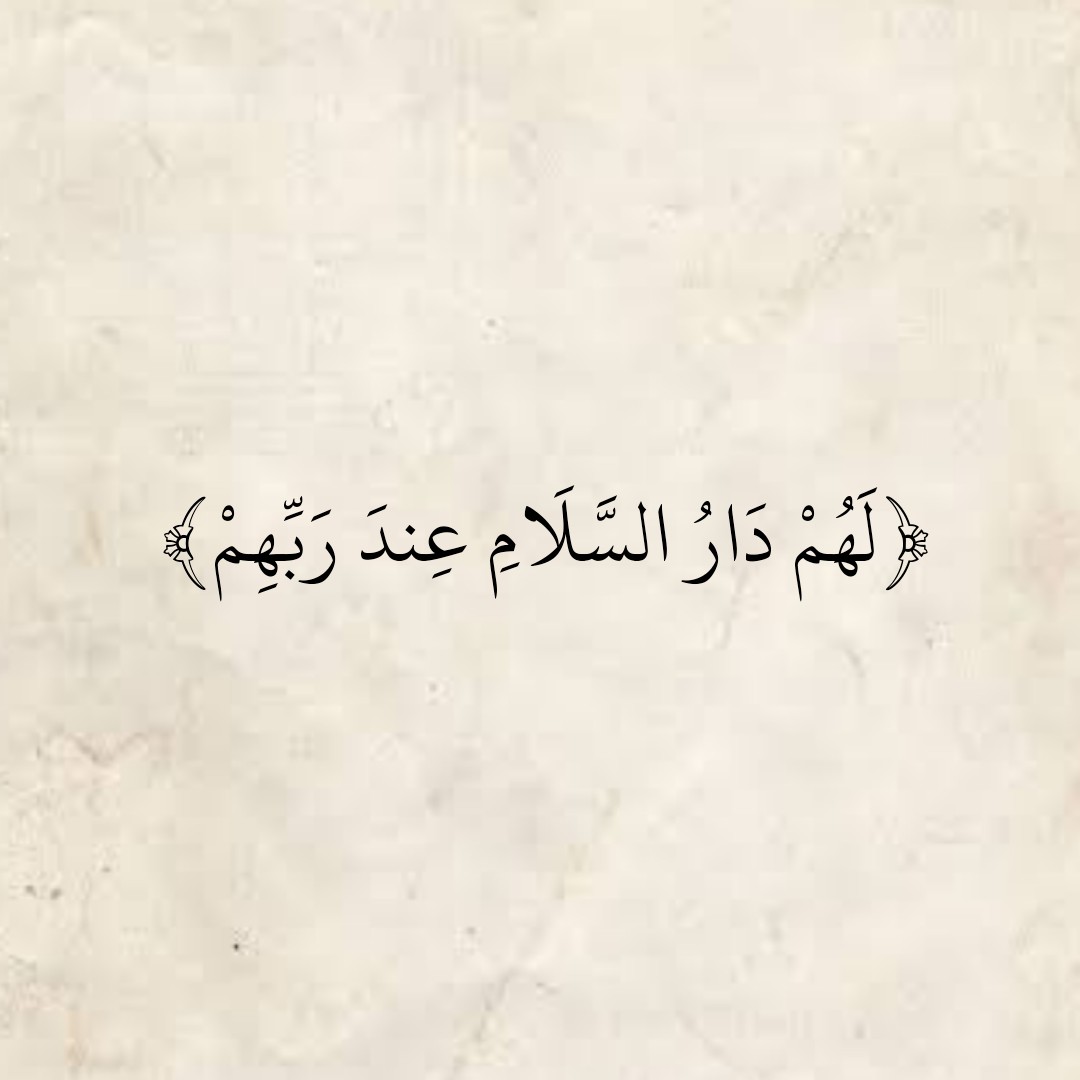 ﴿لَهُمْ دَارُ السَّلَامِ عِندَ رَبِّهِمْ﴾